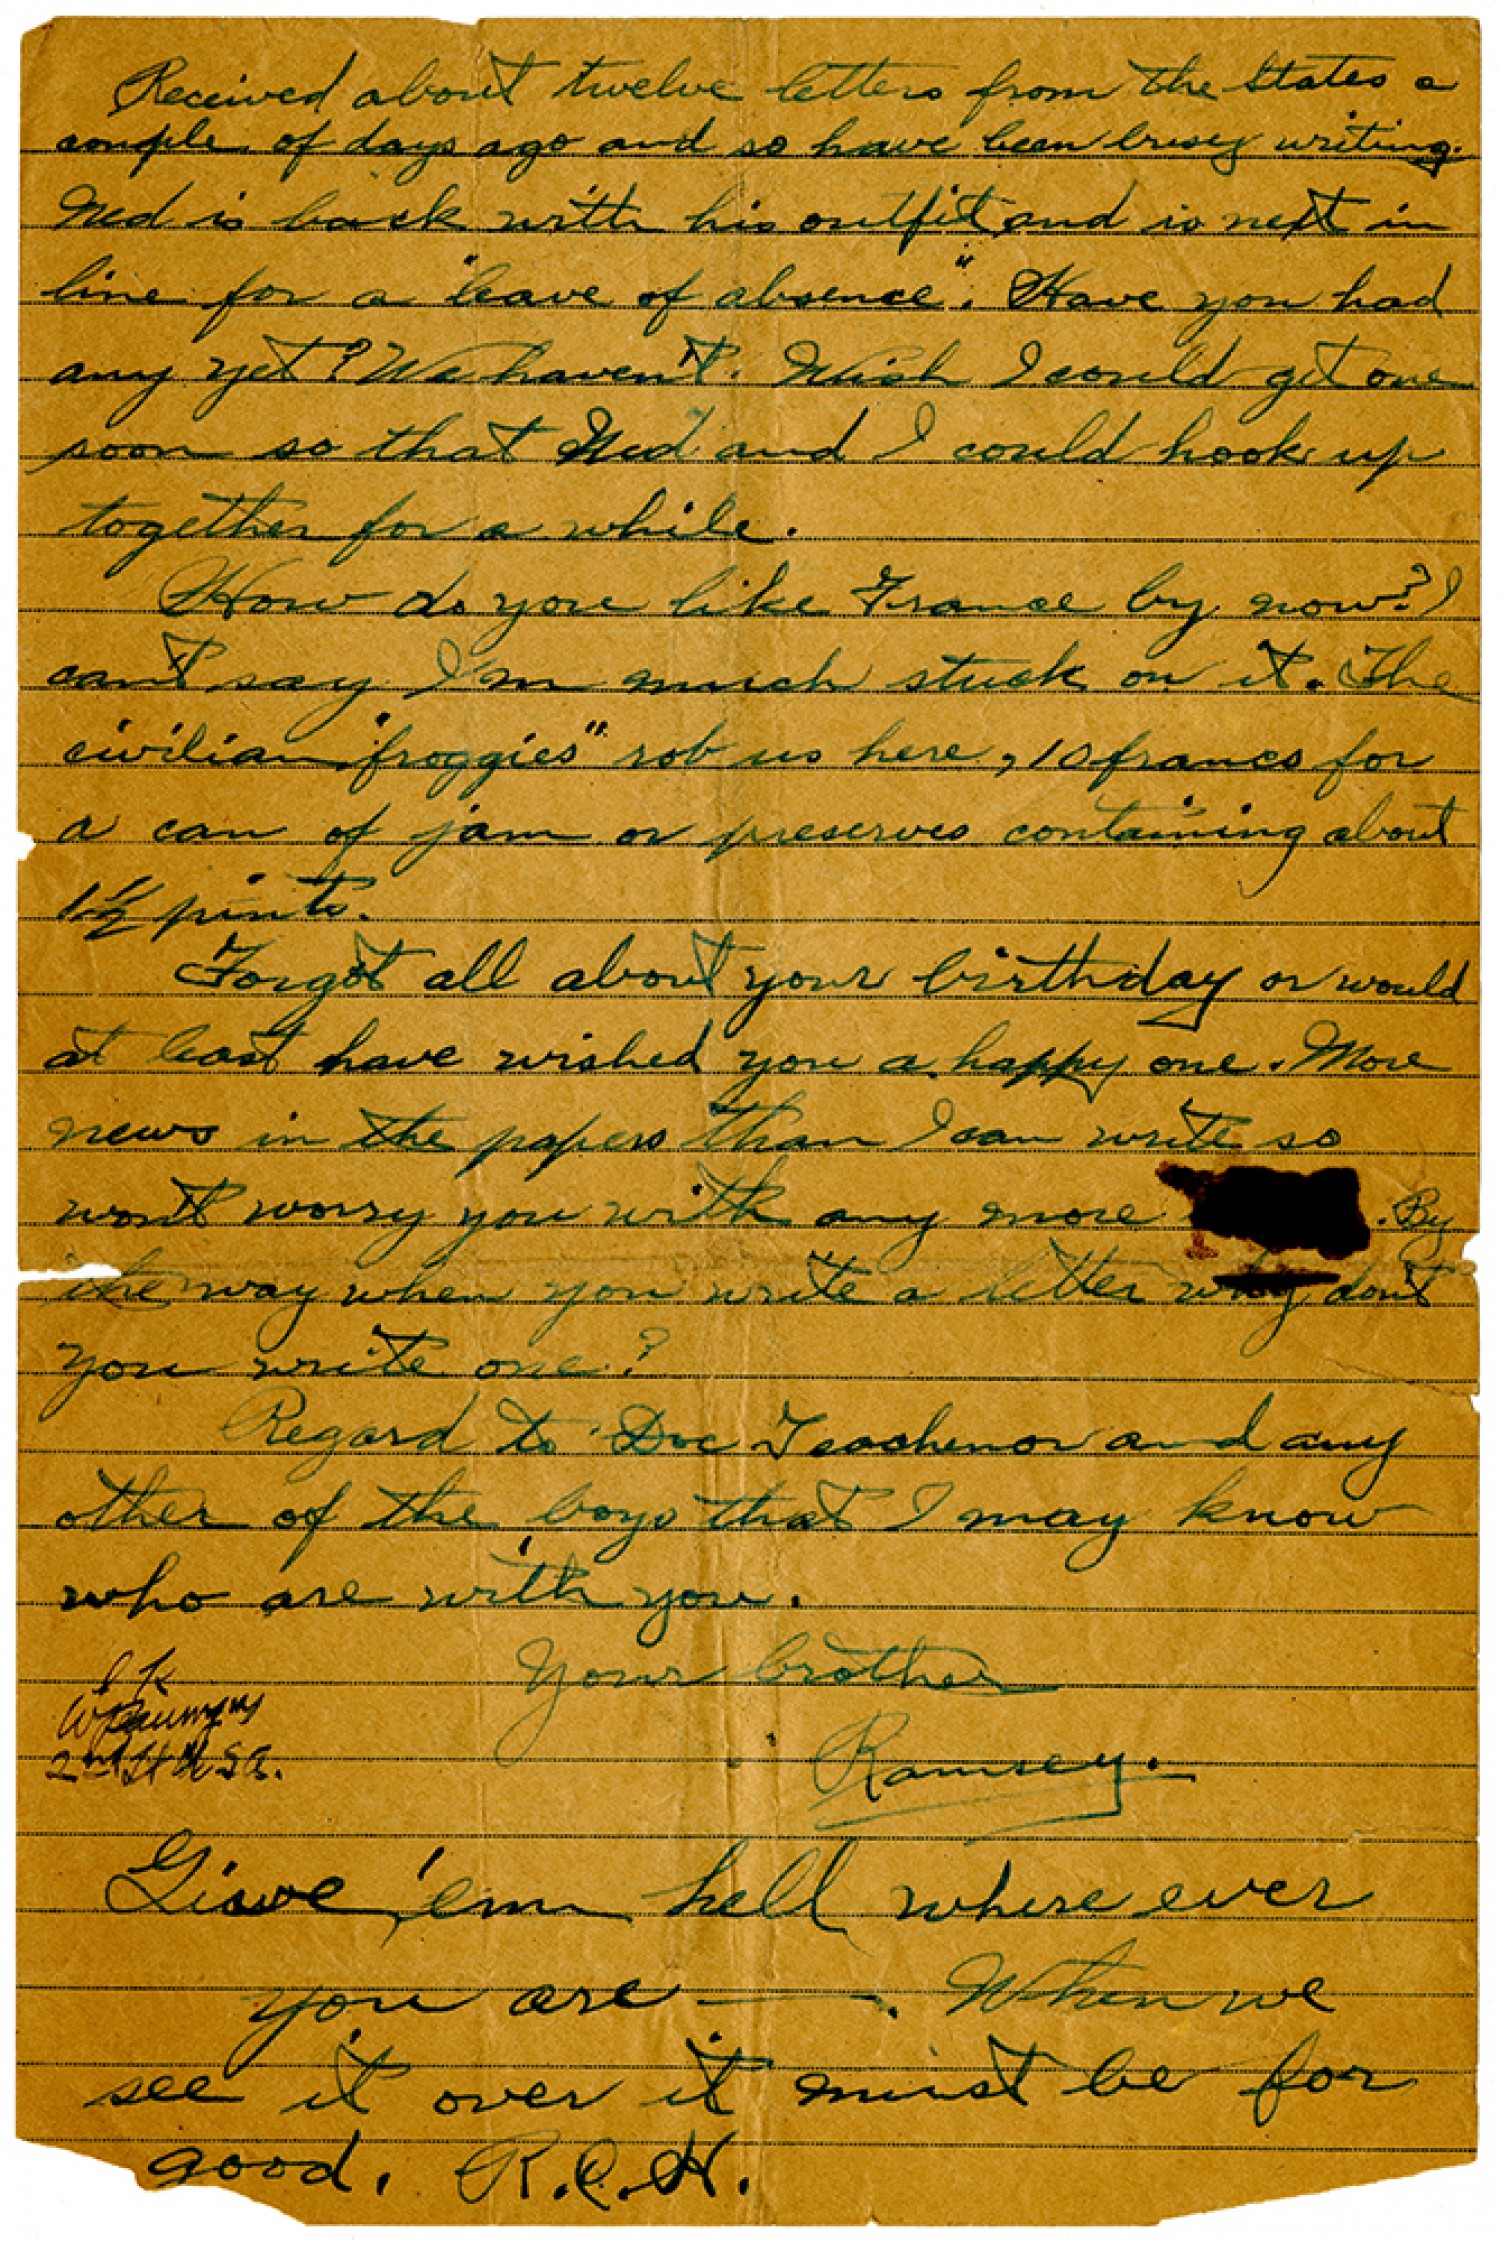 Received about twelve letters from the States a
couple of days ago and so have been busy writing.
Ned is back with his outfit and is next in
line for a "leave of absence". Have you had
any yet? We haven't. Wish I could get one
soon so that Ned and I could hook up
together for a while.
How do you like France by now? I
can't say I'm much stuck on it. The
civilian "froggies" rob us here, 10 francs for
a can of jam or preserves containing about
1½ pints.
Forgot all about your birthday or would
at least have wished you a happy one. More
news in the papers than I can write so
won't worry you with any more . By
the way when you write a letter why don't
you write one?
Regard to Doc and any
other of the boys that I may know
who are with you.
Your brother
Ramsey.
OK
2nd Lt USA.
Give 'em hell where ever
you are —. When we
see it over it must be for
good. R.C.H.